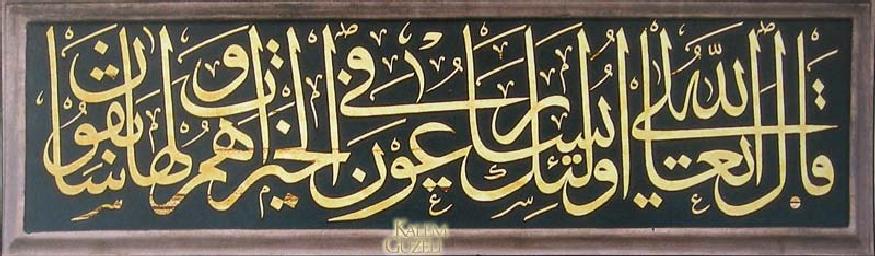 قال الله تعالى أولئك يسارعون في الخيرات وهم لها سابقون
KALEM GÜZELİ